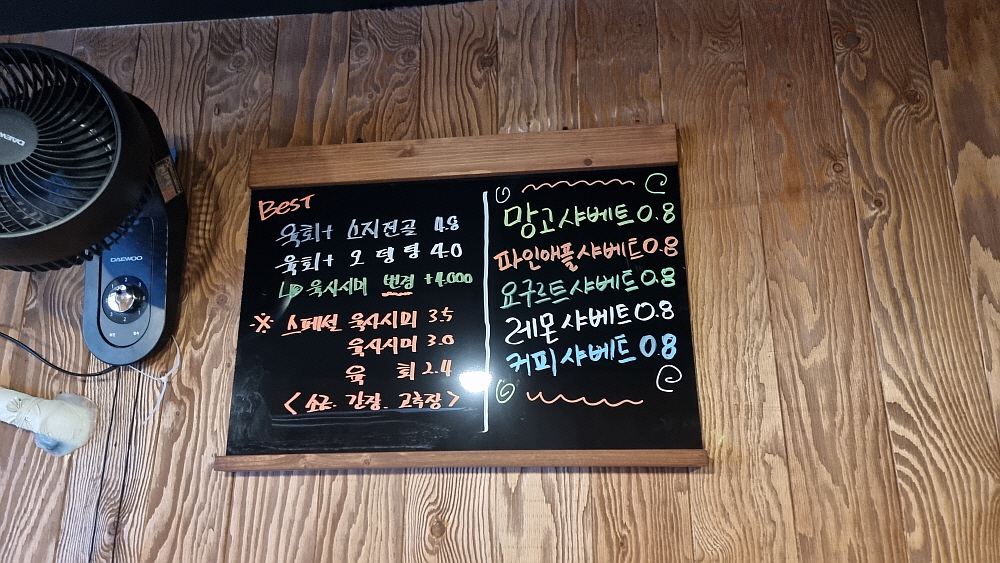 BEST
육회+ 스지전골 4.8
육회+ 오뎅탕 4.0
육사시미 변경 +4.000
※ 스페셜 육사시미 3.5
육사시미 3.0
육 회 2.4
< 소금. 간장. 고추장 >
망고샤베트 0.8
파인애플샤베트 0.8
요구르트샤베트 0.8
레몬샤베트 0.8
커피샤베트 0.8
DAEWOO
DAEWOO